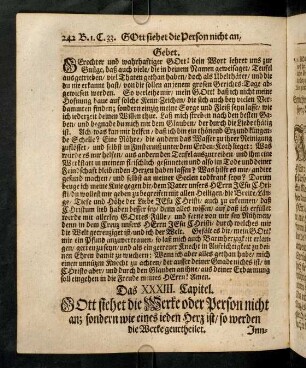 242 B. 1. C. 33. GOtt siehet die Person nicht an,
Gebet.
GErechter und wahrhaftiger GOtt! dein Wort lehret uns zur
Gnüge, daß auch viele, die in deinem Namen geweissaget, Teufel
ausgetrieben, viel Thaten gethan haben, doch als Ubelthäter, und die
du nie erkannt hast, von dir sollen an jenem grossen Gerichts-Tage ab-
gewiesen werden. So verleihe mir, mein GOtt! daß ich nicht meine
Hofnung baue auf solche Zeichen, die sich auch bey vielen Ver-
dammten finden; sondern einzig meine Sorge und Fleiß seyn lasse, wie
ich jederzeit deinen Willen thue. Laß mich streben nach den besten Ga-
ben, und begnade du mich mit dem Glauben, der durch die Liebe thätig
ist. Ach was kan mir helfen, daß ich ein thönend Ertz und klingen-
de Schelle? Eine Röhre, die andern das Wasser zu ihrer Reinigung
zuflösset, und selbst in Finsterniß unter dem Erden-Koth lieget? Was
würde es mir helfen, aus andern den Teufel austreiben, und ihm eine
Werkstatt in meinem fleischlich gesinneten und also im Tode und deiner
Feindschaft bleibenden Herzen lassen? Was hilft es mir, andere
gesund machen, und selbst an meiner Seelen todtkrank seyn? Darum
beuge ich meine Knie gegen dir dem Vater unsers HErrn JEsu Christi
du wollest mir geben zu begreiffen mit allen Heiligen, die Breite, Län-
ge, Tiefe und Höhe der Liebe JEsu Christi, auch zu erkennen, daß
Christum lieb haben besser sey, denn alles wissen, auf daß ich erfüllet
werde mit allerley GOttes Fülle, und ferne von mir sey Rühmen,
denn in dem Creuz unsers HErrn JEsu Christi, durch welchen mir
die Welt gecreuziget ist, und ich der Welt. Gefällt es dir, mein GOtt!
mir ein Pfund anzuvertrauen, so laß mich auch Barmherzigkeit erlan-
gen, getreu zu seyn, und als ein getreuer Knecht in Aufrichtigkeit zu dei-
nen Ehren damit zu wuchern: Wenn ich aber alles gethan habe, mich
einen unnützen Knecht zu achten, der ausser deiner Gnade nichts ist, in
Christo aber, und durch den Glauben an ihn, aus deiner Erbarmung
soll eingehen in die Freude meines HErrn! Amen.
Das XXXIII. Capitel.
GOtt siehet die Werke oder Person nicht
an; sondern wie eines ieden Herz ist, so werden
die Werke geurtheilet.
Inn-